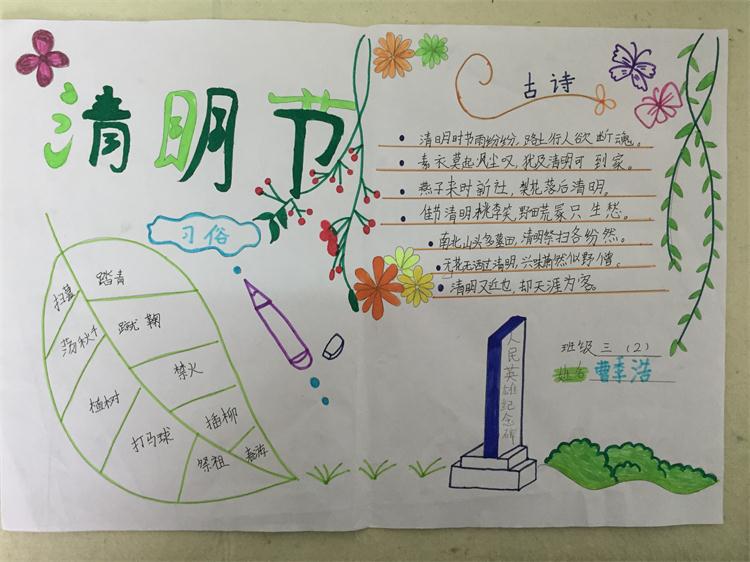 清明节
习俗
扫墓
踏青
荡秋千
蹴鞠
植树
禁火
打马球
插柳
祭祖
古诗
清明时节雨纷纷，路上行人欲断魂。
素衣莫起风尘叹，犹及清明可到家。
燕子来时新社，梨花落后清明。
佳节清明桃李笑，野田荒冢只生愁。
南北山头多墓田，清明祭扫各纷然。
无花无酒过清明，兴味萧然似野僧。
清明又近也，却天涯为客。
人民英雄纪念碑
班级 三（2）
姓名 曹季浩